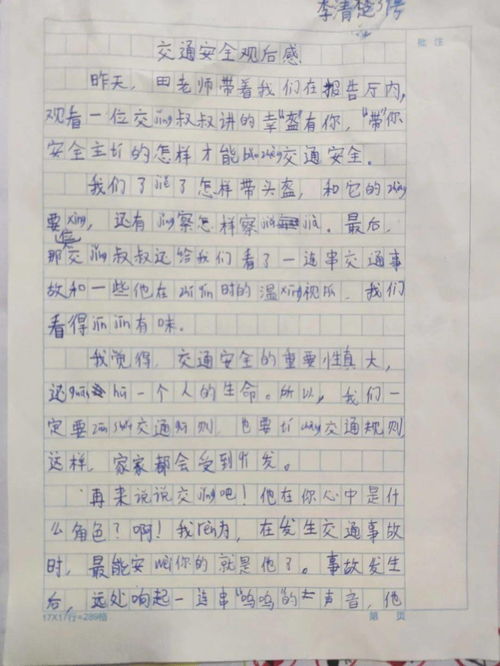 李清楚 37号
批 注
交通安全观后感
昨天，田老师带着我们在报告厅内，
观看一位交jǐng叔叔讲的幸"盔"有你，"带"你
安全主tí的怎样才能bǎo zhàng交通安全。
我们了jiě了怎样带头盔，和它的zhòng
要xìng，还有jǐng察怎样察jiǔ jià。最后，
那位交jǐng叔叔还给我们看了一连串交通事
故和一些他在zhí qín时的温xīng视瓜，我们
看得jīn jīn有味。
我觉得，交通安全的重要性真大，
还guān hū一个人的生命。所以，我们一
定要zūn shǒu交通 规则，也要 交通规则
这样，家家都会受到 发。
再来说说交jǐng吧！他在你心中是什
么角色？啊！我rèn为，在发生交通事故
时，最能安wèi你的就是他了。事故发生
后，远处响起一连串"呜呜"的 声音，他
17X17行=289格
第 页